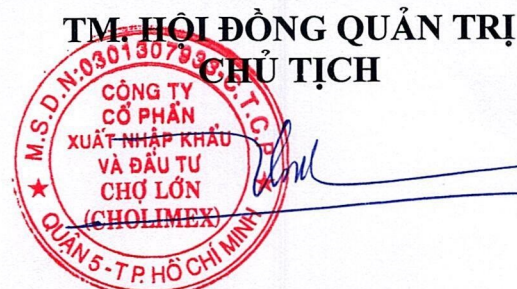 TM. HỘI ĐỒNG QUẢN TRỊ
CHỦ TỊCH
M.S.D.N:0301307933-C.T.C.P
CÔNG TY
CỔ PHẦN
XUẤT NHẬP KHẨU
VÀ ĐẦU TƯ
CHỢ LỚN
(CHOLIMEX)
QUẬN 5 - T.P. HỒ CHÍ MINH